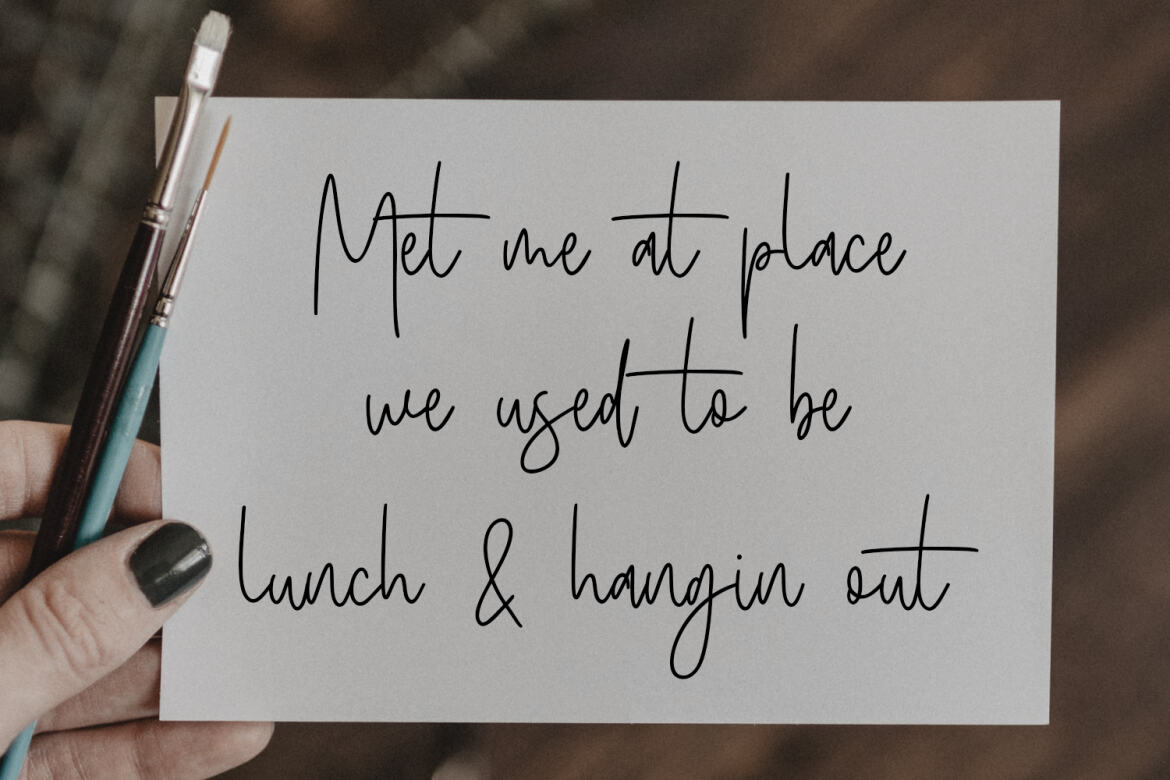 Met me at place
we used to be
lunch & hangin out